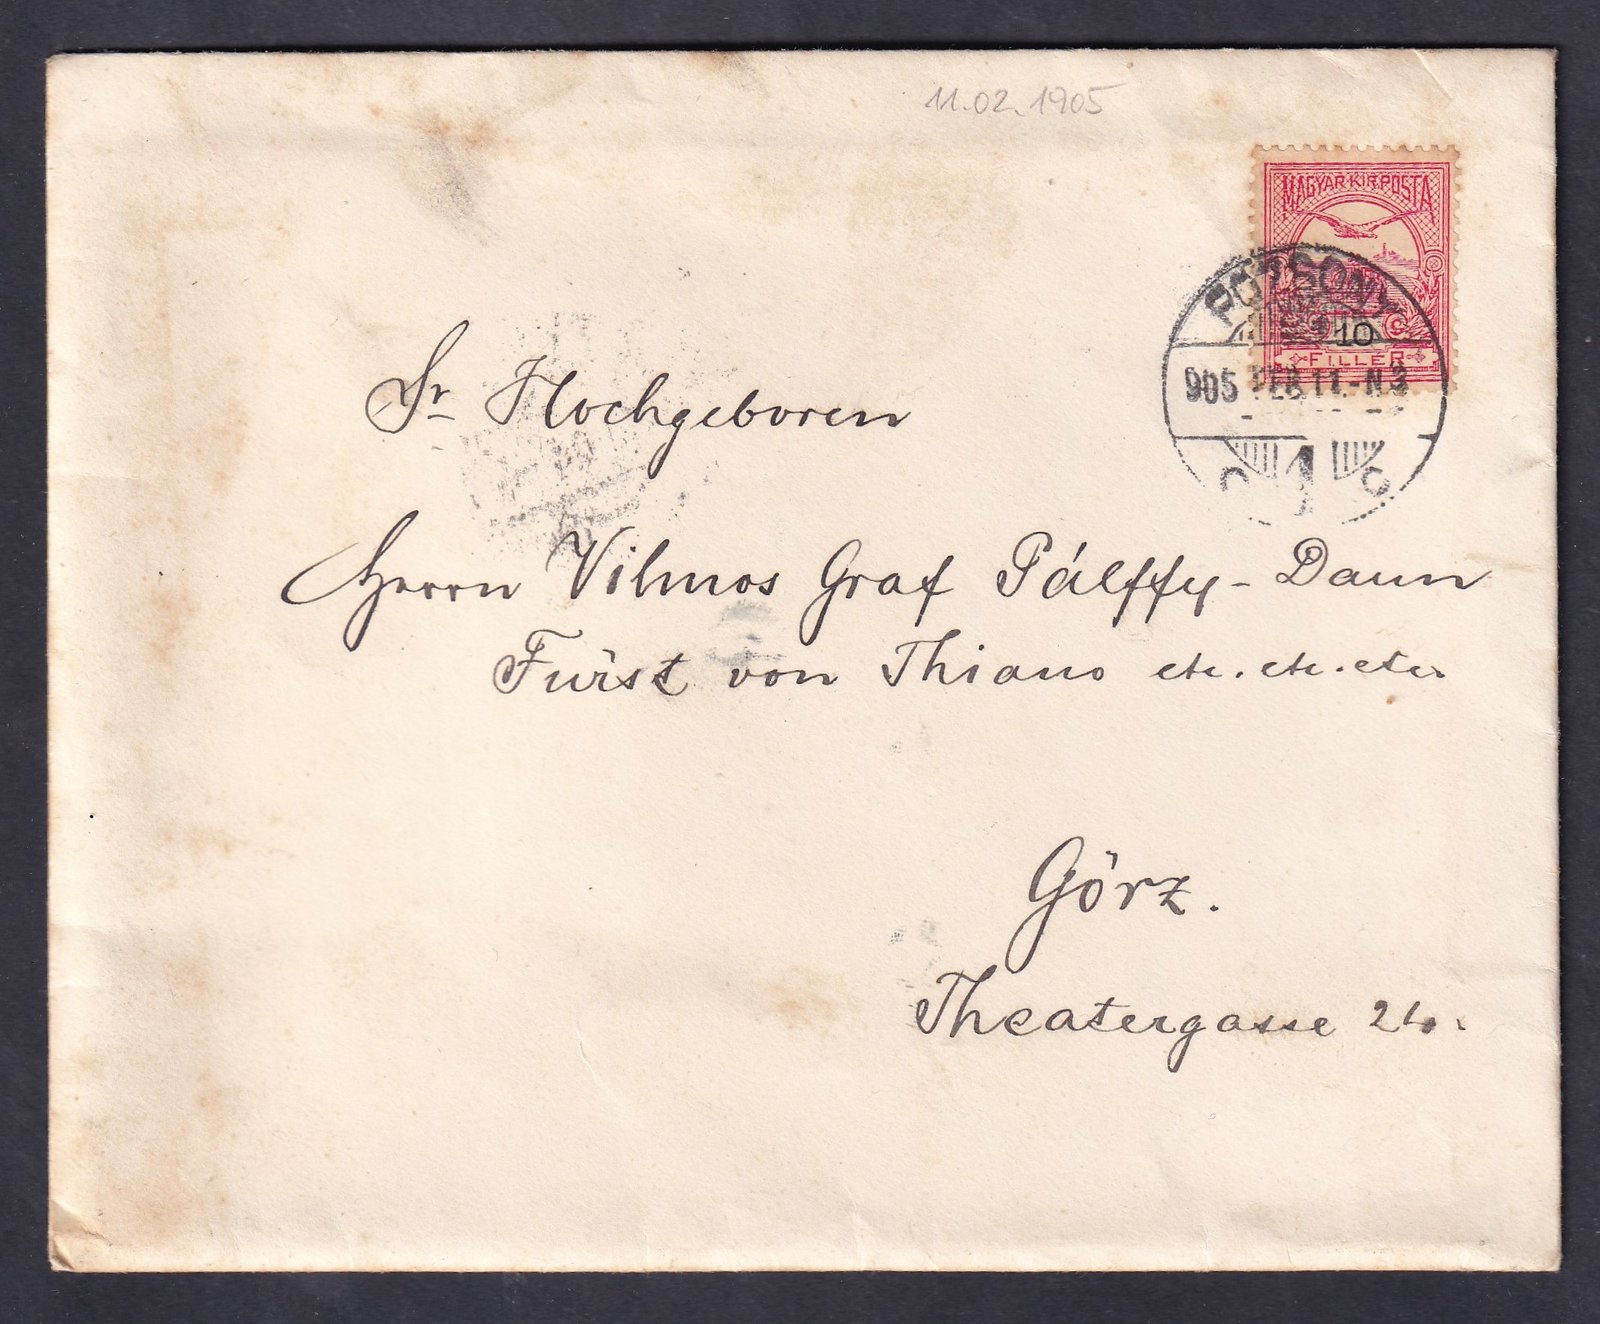 11.02.1905
MAGYAR KIR. POSTA
10
FILLÉR
POZSONY
905 FEB 11.-N 3
1
Sr Hochgeboren
Herrn Vilmos Graf Pálffy-Daun
Fürst von Thiano etc. etc. etc.
Görz.
Theatergasse 20.